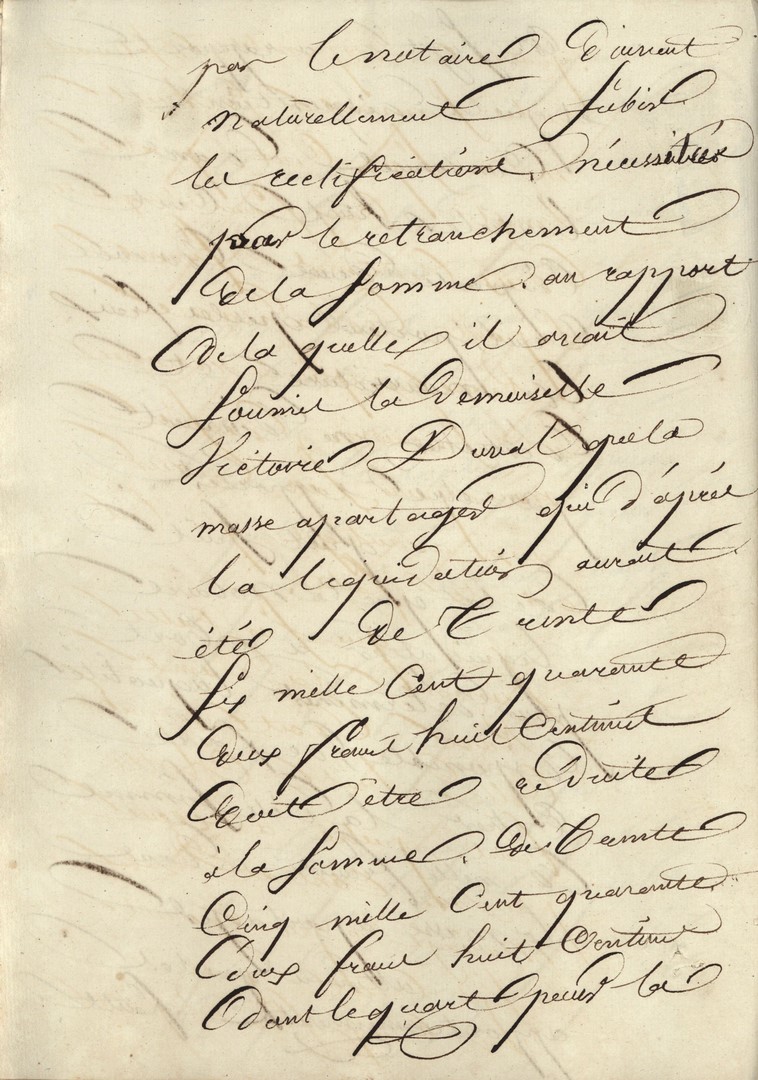 par le notaire doivent
naturellement subir
la rectification nécessitée
pour le retranchement
de la somme au rapport
de laquelle il avait
soumis la demoiselle
Victoire Duval que la
masse apartager qui d'après
la liquidation aurait
été de trente
six mille cent quarante
deux francs huit centimes
doit être réduite
à la somme de trente
Cinq mille cent quarante
deux francs huit centimes
dont le quart pour la